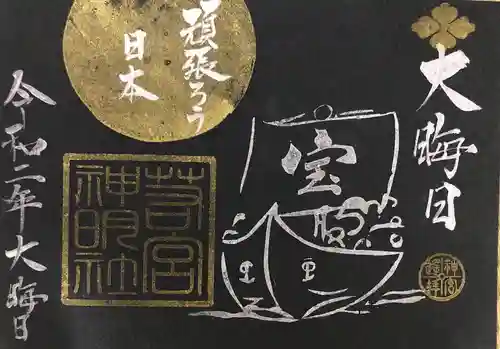 大晦日
頑張ろう
日本
宝
若宮
神明社
神宮
遥拝
令和二年大晦日